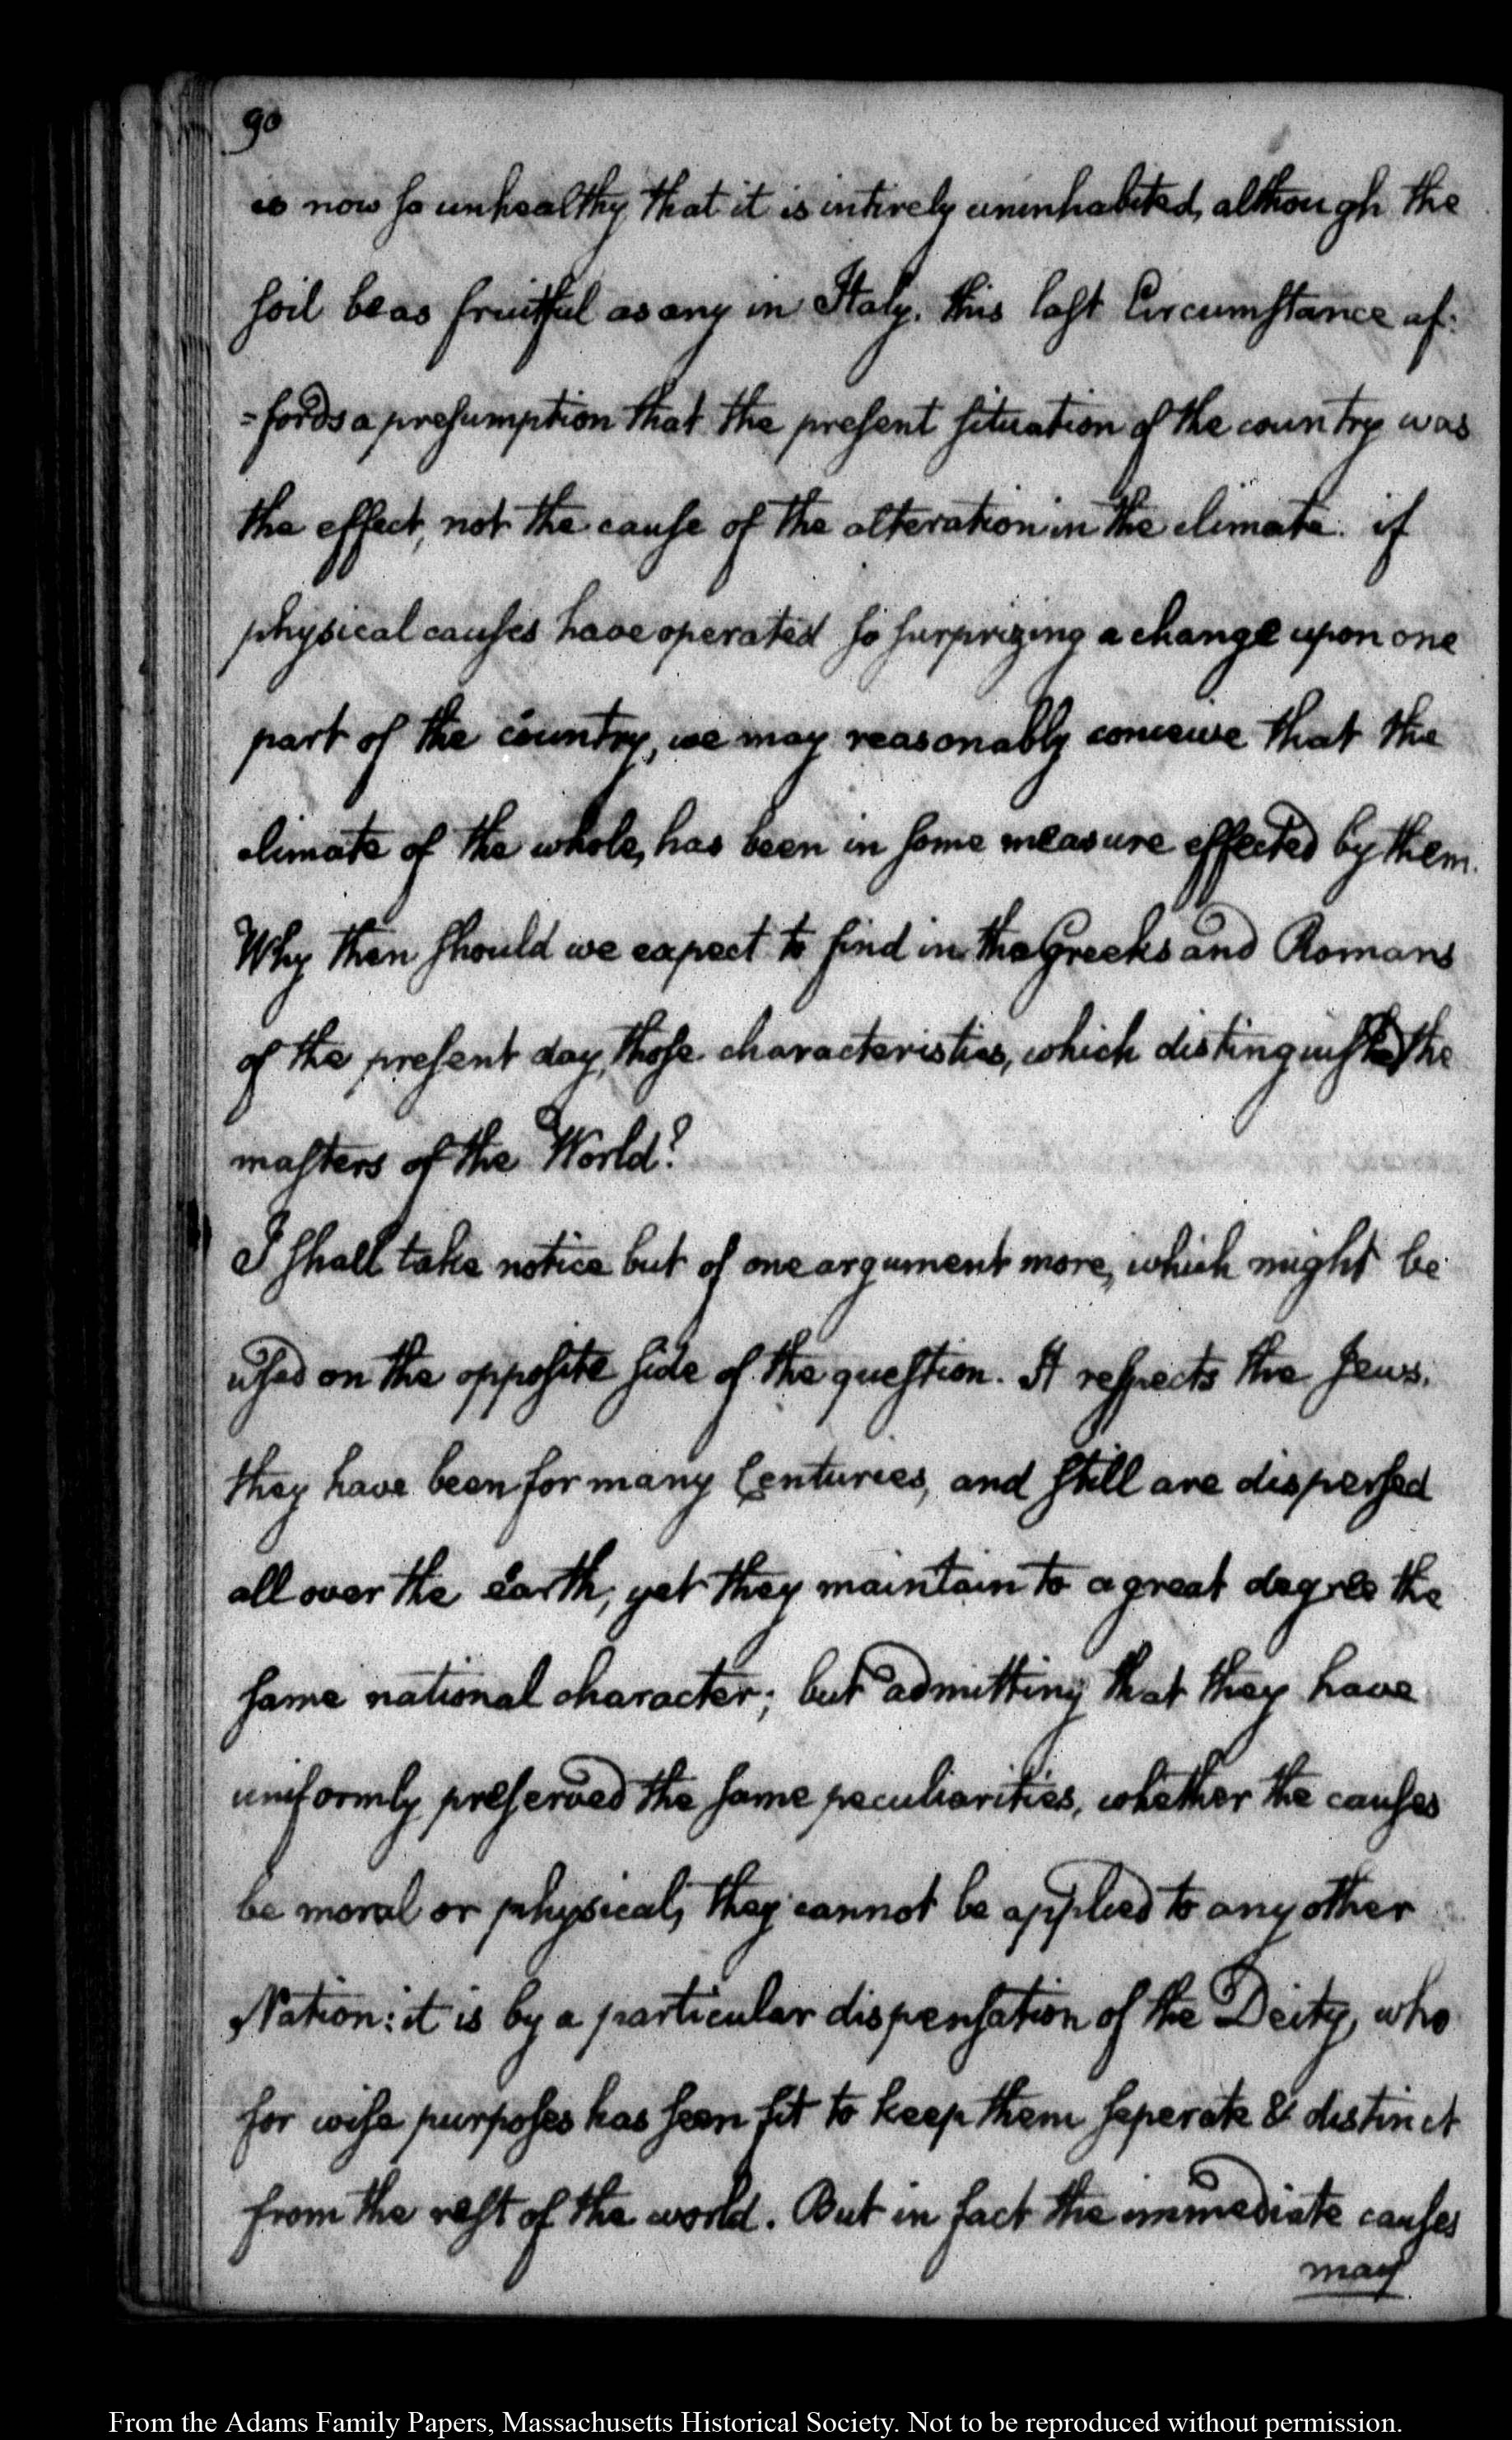 90
is now so unhealthy that it is intirely uninhabited, although the
soil be as fruitful as any in Italy. this last Circumstance af:
=fords a presumption that the present situation of the country was
the effect, not the cause of the alteration in the climate. if
physical causes have operated so surprizing a change upon one
part of the country, we may reasonably conceive that the
climate of the whole, has been in some measure effected by them.
Why then should we expect to find in the Greeks and Romans
of the present day, those characteristics, which distinguished the
masters of the World?
I shall take notice but of one argument more, which might be
used on the opposite side of the question. It respects the Jews.
they have been for many Centuries, and still are dispersed
all over the earth, yet they maintain to a great degree the
same national character; but admitting that they have
uniformly preserved the same peculiarities, whether the causes
be moral or physical, they cannot be applied to any other
Nation: it is by a particular dispensation of the Deity, who
for wise purposes has seen fit to keep them seperate & distinct
from the rest of the world. But in fact the immediate causes
may
From the Adams Family Papers, Massachusetts Historical Society. Not to be reproduced without permission.